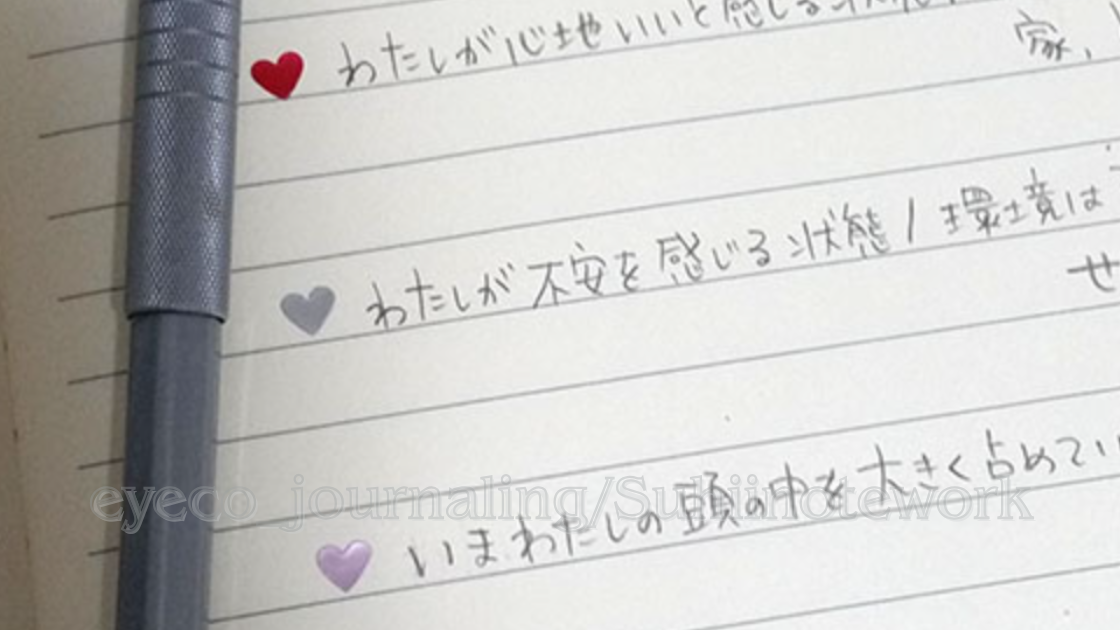 わたしが心地いいと感じる状態
家、
わたしが不安を感じる状態/環境は
せ
いまわたしの頭の中を大きく占めてい
eyeco journaling/Sukiinotework